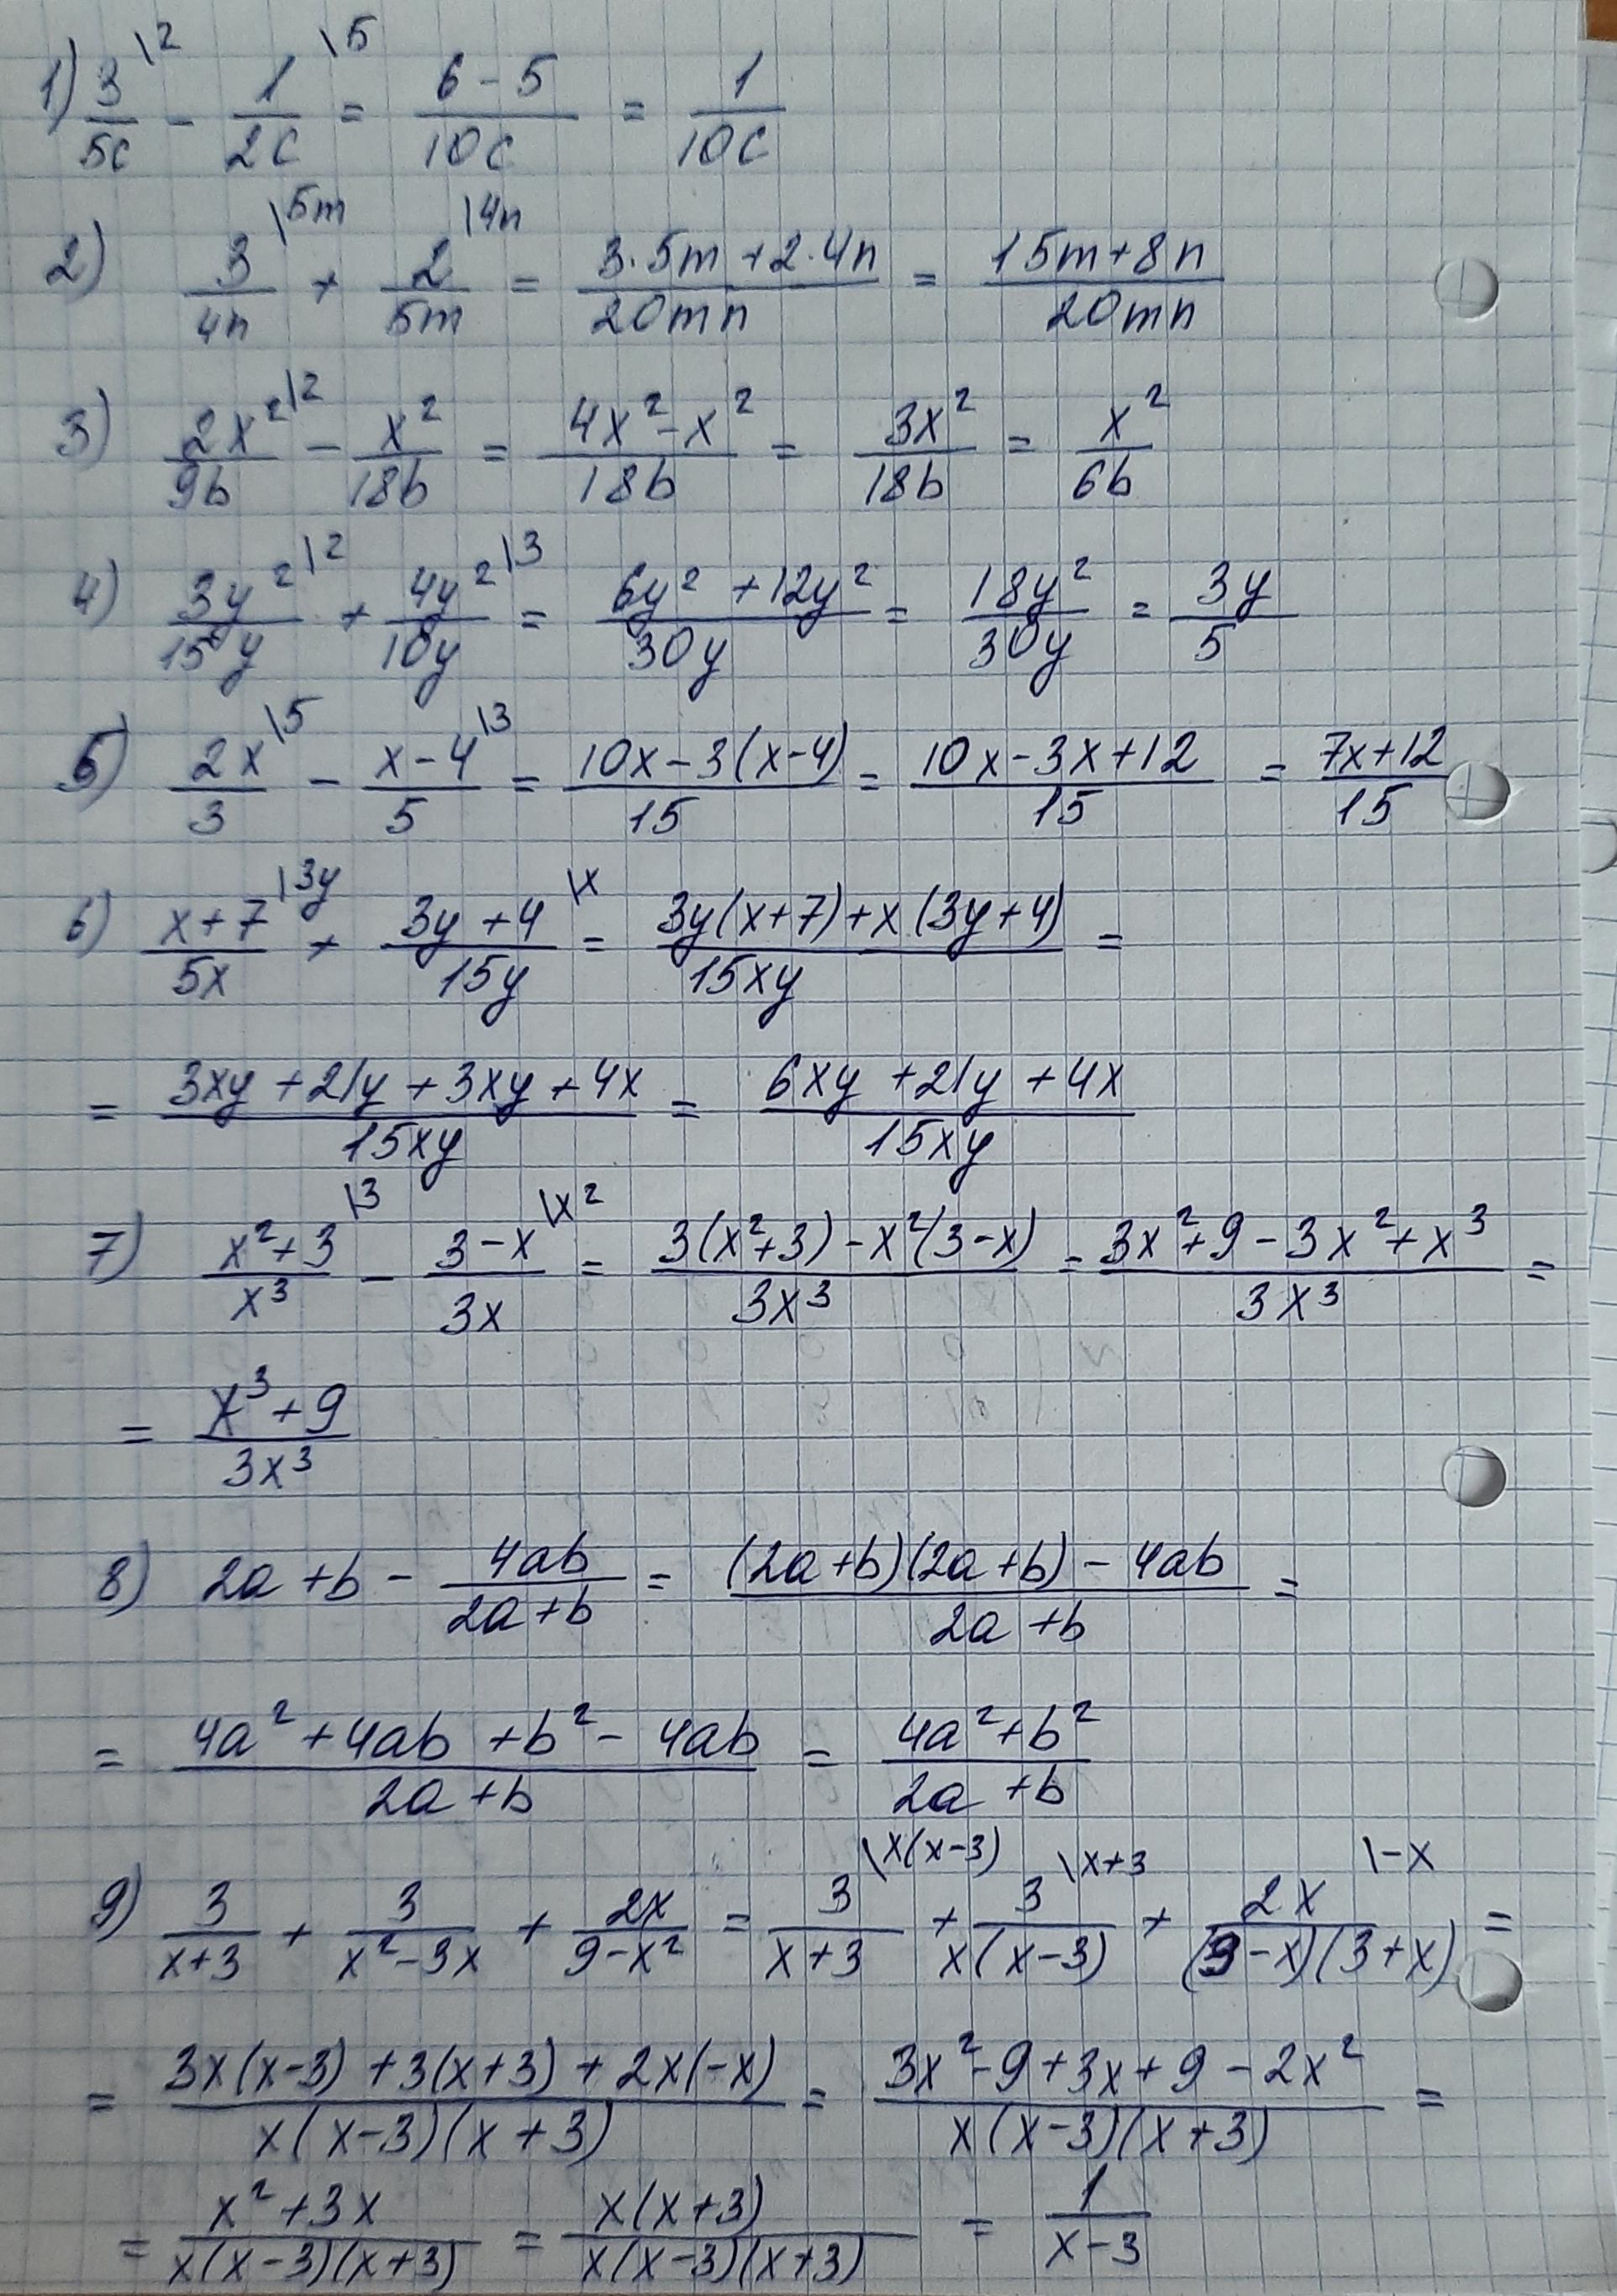 1) 3/5c \2 - 1/2c \5 = (6-5)/10c = 1/10c
2) 3/4n \5m + 2/5m \4n = (3·5m+2·4n)/20mn = (15m+8n)/20mn
3) 2x²/9b \2 - x²/18b = (4x²-x²)/18b = 3x²/18b = x²/6b
4) 3y²/15y \2 + 4y²/10y \3 = (6y²+12y²)/30y = 18y²/30y = 3y/5
5) 2x/3 \5 - (x-4)/5 \3 = (10x-3(x-4))/15 = (10x-3x+12)/15 = (7x+12)/15
6) (x+7)/5x \3y + (3y+4)/15y \x = (3y(x+7)+x(3y+4))/15xy =
= (3xy+21y+3xy+4x)/15xy = (6xy+21y+4x)/15xy
7) (x²+3)/x³ \3 - (3-x)/3x \x² = (3(x²+3)-x²(3-x))/3x³ = (3x²+9-3x²+x³)/3x³ =
= (x³+9)/3x³
8) 2a+b - 4ab/(2a+b) = ((2a+b)(2a+b)-4ab)/(2a+b) =
= (4a²+4ab+b²-4ab)/(2a+b) = (4a²+b²)/(2a+b)
9) 3/(x+3) + 3/(x²-3x) + 2x/(9-x²) = 3/(x+3) \x(x-3) + 3/(x(x-3)) \x+3 + 2x/((3-x)(3+x)) \-x =
= (3x(x-3)+3(x+3)+2x(-x))/(x(x-3)(x+3)) = (3x²-9+3x+9-2x²)/(x(x-3)(x+3)) =
= (x²+3x)/(x(x-3)(x+3)) = x(x+3)/(x(x-3)(x+3)) = 1/(x-3)